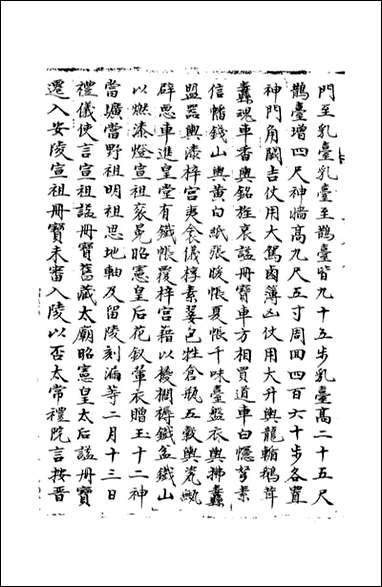 門至乳臺乳臺至鵲臺皆九十五步乳臺高二十五尺
鵲臺增四尺神墻高九尺五寸周囬四百六十步各置
神門角闕吉仗用大駕鹵簿凶仗用大升輿龍輴鵝茸
纛魂車香輿銘旌哀謚冊寶車方相買道車白幰弩素
信幡錢山輿黄白紙張暖帳夏帳千味臺盤衣輿拂纛
盟器輿漆梓宫夷衾儀椁素翣包牲倉瓶五穀輿瓷甒
辟惡車進皇堂有鐵帳覆梓宫藉以㯶櫚褥鐵盆鐵山
以燃漆燈宣祖衮冕昭憲皇后花釵翬衣贈玉十二神
當壙當野祖明祖思地軸及留陵刻漏等二月十三日
禮儀使言宣祖謚冊寶舊藏太廟昭憲皇太后謚冊寶
還入安陵宣祖冊寶未審入陵以否太常禮院言按晋